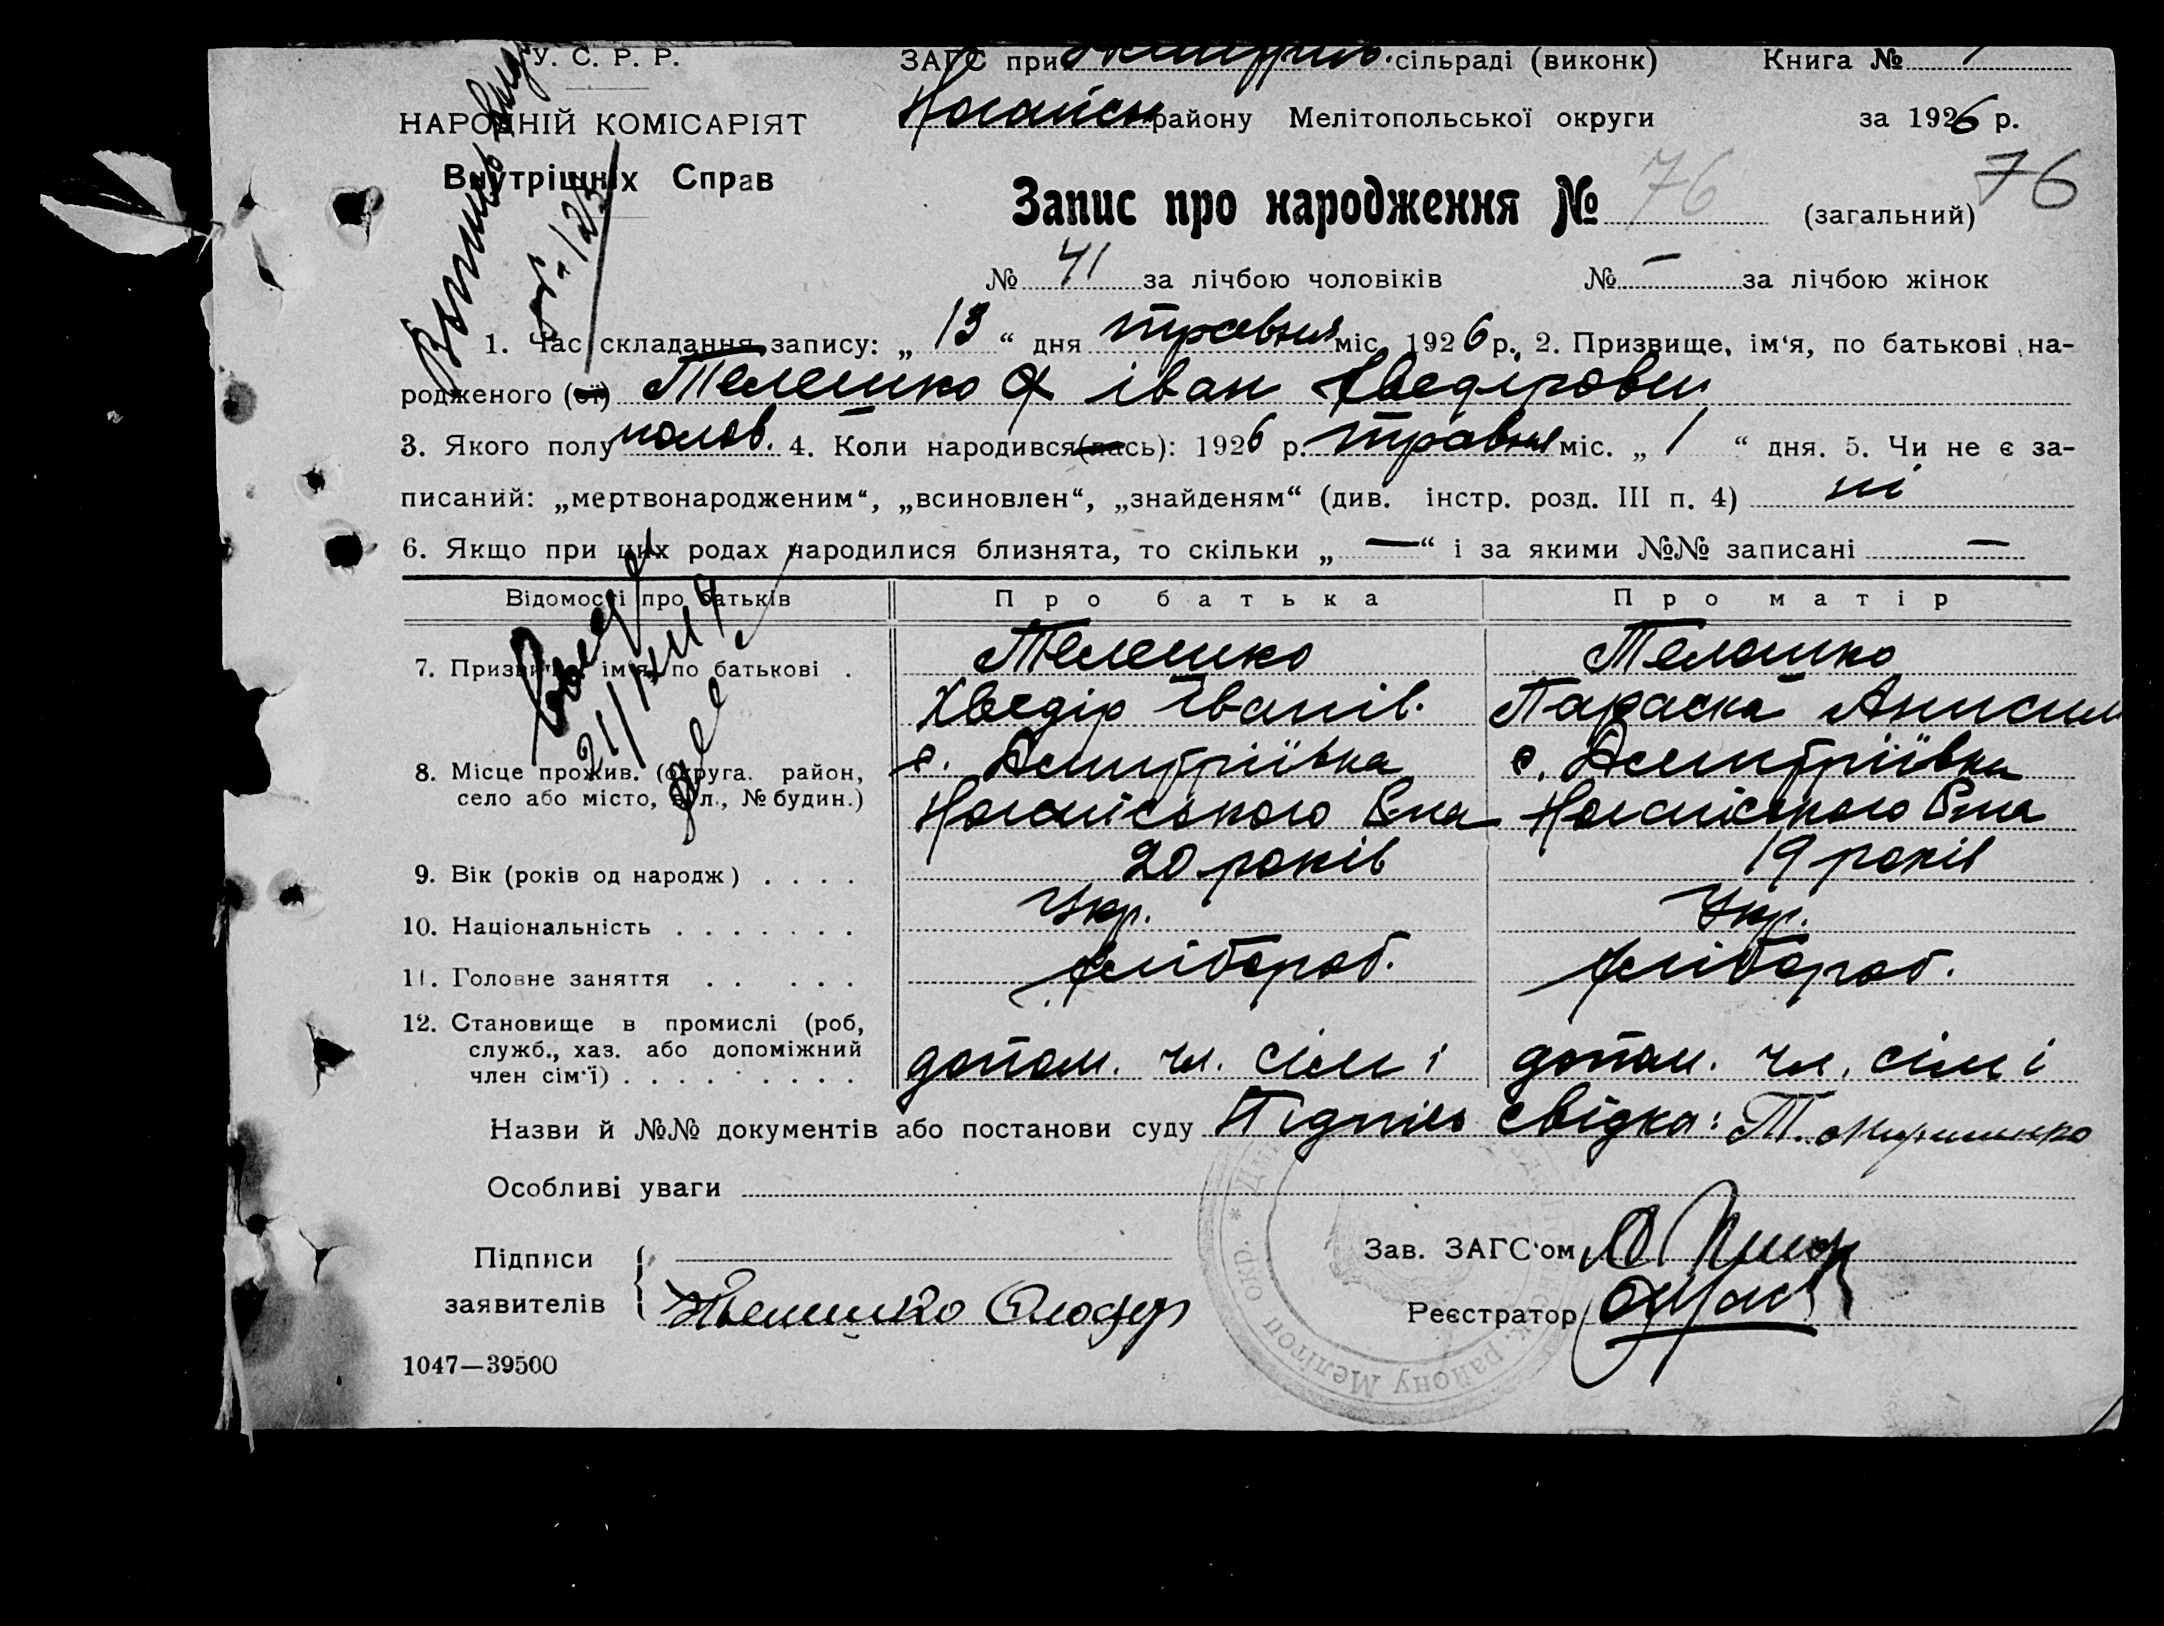 У. С. Р. Р.
НАРОДНІЙ КОМІСАРІЯТ
Внутрішніх Справ
ЗАГС при сільраді (виконк) Книга №
Ногайськ району Мелітопольської округи за 1926 р.
Запис про народження № 76 (загальний) 76
№ 41 за лічбою чоловіків № — за лічбою жінок
1. Час складання запису: „ 13 “ дня травня міс. 1926 р. 2. Призвище, ім‘я, по батькові на-
родженого (ої) Телешко іван Хведірович
3. Якого полу чолов. 4. Коли народився(лась): 1926 р. травня міс. „ 1 “ дня. 5. Чи не є за-
писаний: „мертвонародженим“, „всиновлен“, „знайденям“ (див. інстр. розд. III п. 4) ні
6. Якщо при цих родах народилися близнята, то скільки „ — “ і за якими №№ записані —
Відомості про батьків Про батька Про матір
7. Призвище, ім‘я, по батькові . Телешко Телешко
Хведір Іванів. Параска Анисим
8. Місце прожив. (округа. район, с. Дмитріївка с. Дмитріївка
село або місто, вул., № будин.) Ногайського Р-на Ногайського Р-на
9. Вік (років од народж) . . . . 20 років 19 років
10. Національність . . . . . . . Укр. Укр.
11. Головне заняття . . . . . хлібороб. хлібороб.
12. Становище в промислі (роб,
служб., хаз. або допоміжний
член сім‘ї) . . . . . . . . . допом. чл. сімі допом. чл. сімі
Назви й №№ документів або постанови суду Підпись свідка: Т.
Особливі уваги
Підписи
заявителів Телешко Федор
Зав. ЗАГС‘ом
Реєстратор
району Мелітоп окр. *
1047—39500